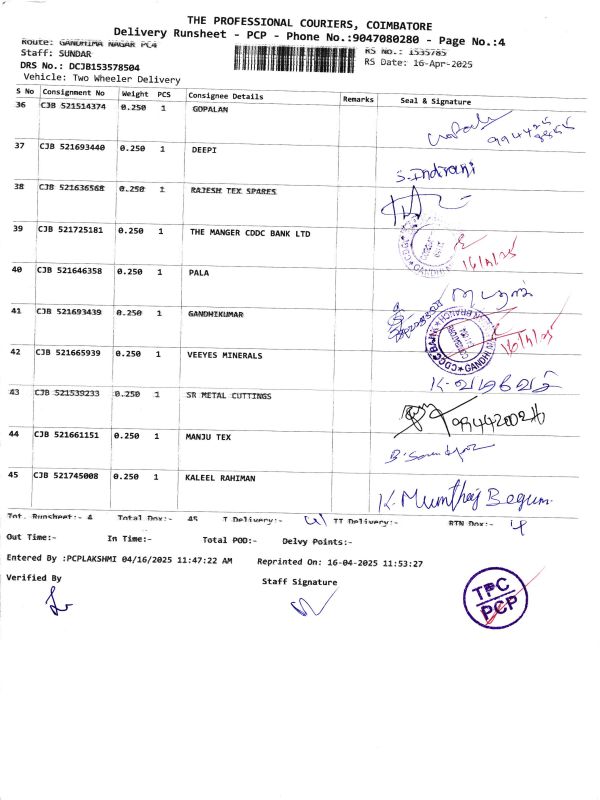 THE PROFESSIONAL COURIERS, COIMBATORE
Delivery Runsheet - PCP - Phone No.:9047080280 - Page No.:4
Route: GANDHIMA NAGAR PC4
RS No.: 1535785
Staff: SUNDAR
RS Date: 16-Apr-2025
DRS No.: DCJB153578504
Vehicle: Two Wheeler Delivery
S No Consignment No Weight PCS Consignee Details Remarks Seal & Signature
36 CJB 521514374 0.250 1 GOPALAN
37 CJB 521693440 0.250 1 DEEPI S. Indrani
38 CJB 521636568 0.250 1 RAJESH TEX SPARES
39 CJB 521725181 0.250 1 THE MANGER CDDC BANK LTD 16/4/25
40 CJB 521646358 0.250 1 PALA
41 CJB 521693439 0.250 1 GANDHIKUMAR 16/4/25
42 CJB 521665939 0.250 1 VEEYES MINERALS
43 CJB 521539233 0.250 1 SR METAL CUTTINGS
44 CJB 521661151 0.250 1 MANJU TEX
45 CJB 521745008 0.250 1 KALEEL RAHIMAN K. Mumthaj Begum
Tot. Runsheet:- 4 Total Dox:- 45 I Delivery:- 41 II Delivery:- RTN Dox:- 4
Out Time:- In Time:- Total POD:- Delvy Points:-
Entered By :PCPLAKSHMI 04/16/2025 11:47:22 AM Reprinted On: 16-04-2025 11:53:27
Verified By Staff Signature
TPC
PCP